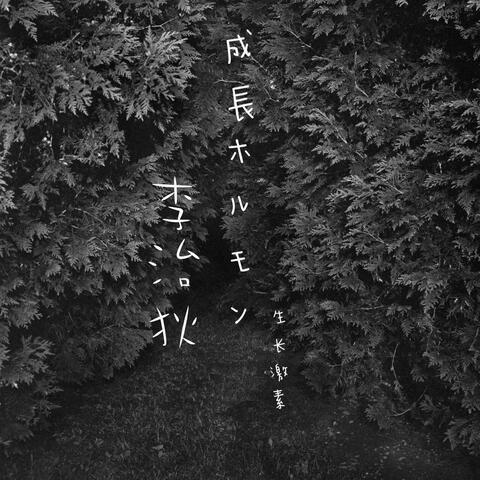 生长激素
成長ホルモン
李治狄